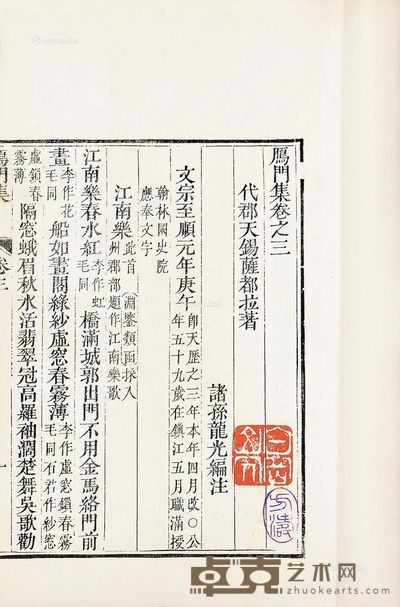 鴈門集卷之三
代郡天錫薩都拉著
諸孫龍光編注
文宗至順元年庚午
即天歷之三年本年四月改〇公
年五十九歲在鎮江五月職滿授
翰林國史院
應奉文字
江南樂
此首淵鑒類函採入
州郡部題作江南樂歌
江南樂春水紅
李作虹
毛同
橋滿城郭出門不用金馬絡門前
畫
李作花
毛同
船如畫閣綠紗虛窓春霧薄
李作虛窓鎖春霧
毛同石君作紗窓
虛鎖春
霧薄
隔窓蛾眉秋水活翡翠冠高羅袖濶楚舞吳歌勸
鴈門集
卷三
一
卓克艺术网
www.zhuokearts.com